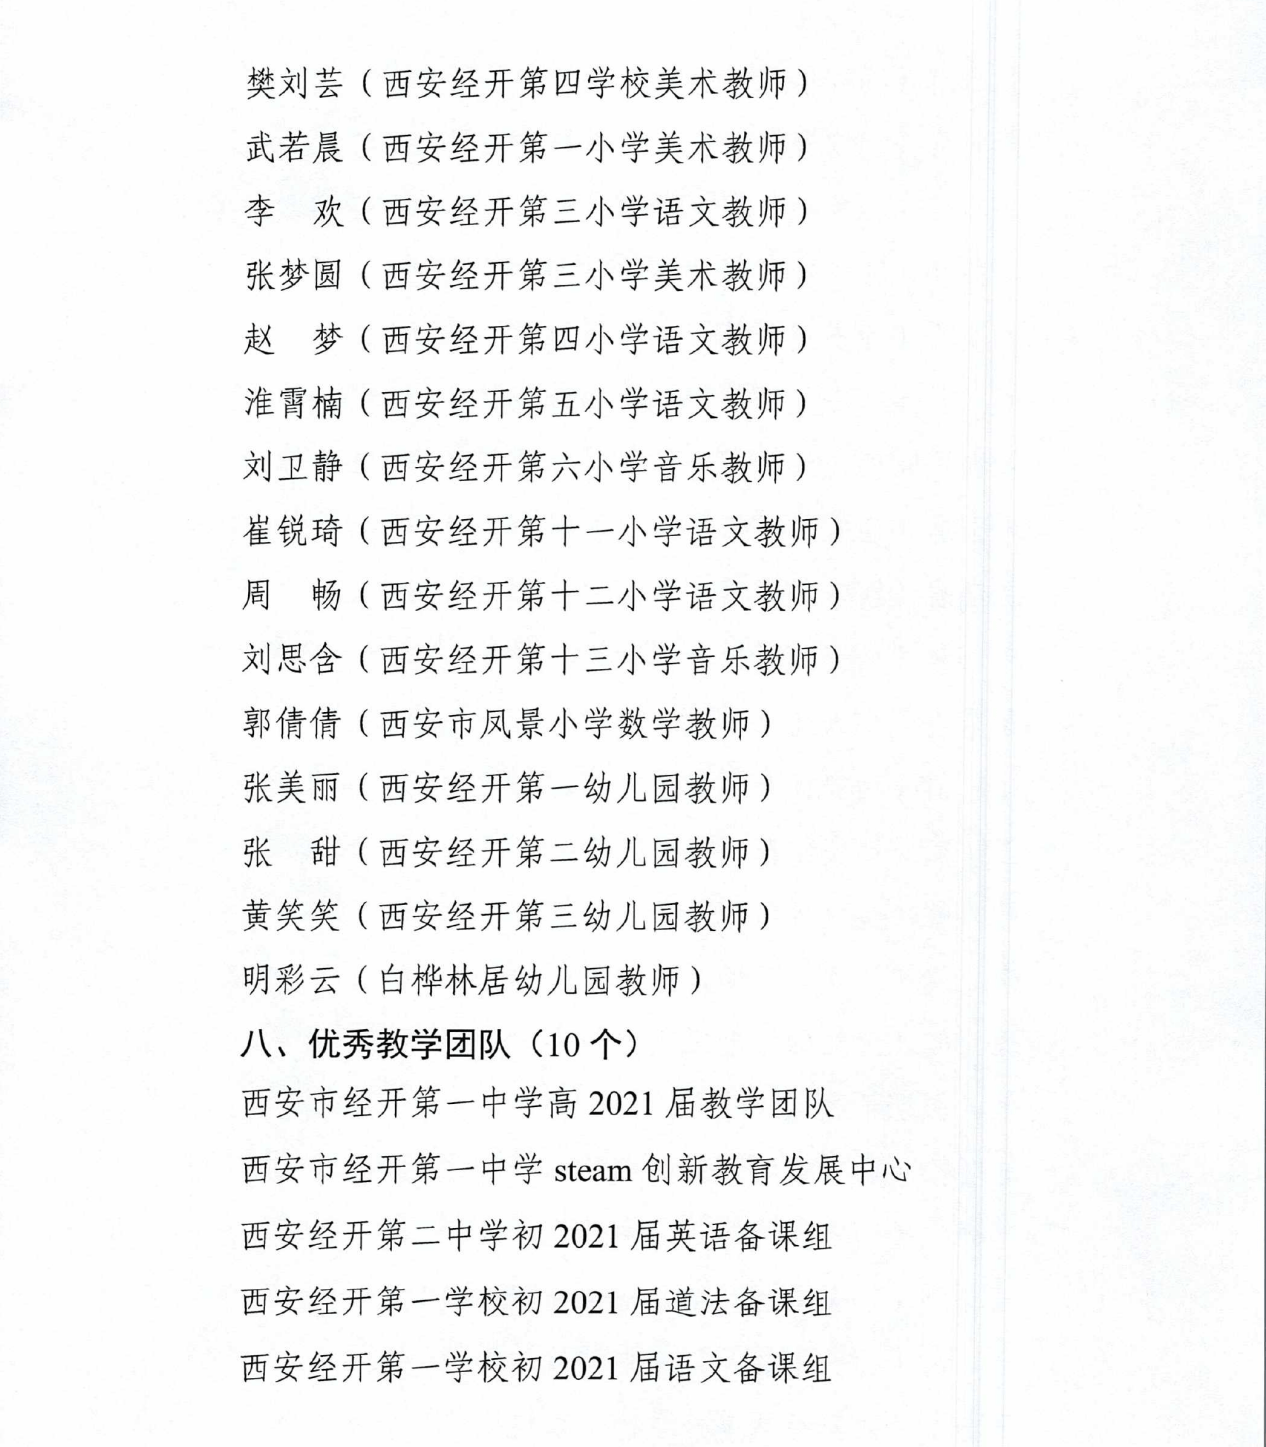 樊刘芸（西安经开第四学校美术教师）
武若晨（西安经开第一小学美术教师）
李　欢（西安经开第三小学语文教师）
张梦圆（西安经开第三小学美术教师）
赵　梦（西安经开第四小学语文教师）
淮霄楠（西安经开第五小学语文教师）
刘卫静（西安经开第六小学音乐教师）
崔锐琦（西安经开第十一小学语文教师）
周　畅（西安经开第十二小学语文教师）
刘思含（西安经开第十三小学音乐教师）
郭倩倩（西安市凤景小学数学教师）
张美丽（西安经开第一幼儿园教师）
张　甜（西安经开第二幼儿园教师）
黄笑笑（西安经开第三幼儿园教师）
明彩云（白桦林居幼儿园教师）
八、优秀教学团队（10 个）
西安市经开第一中学高 2021 届教学团队
西安市经开第一中学 steam 创新教育发展中心
西安经开第二中学初 2021 届英语备课组
西安经开第一学校初 2021 届道法备课组
西安经开第一学校初 2021 届语文备课组